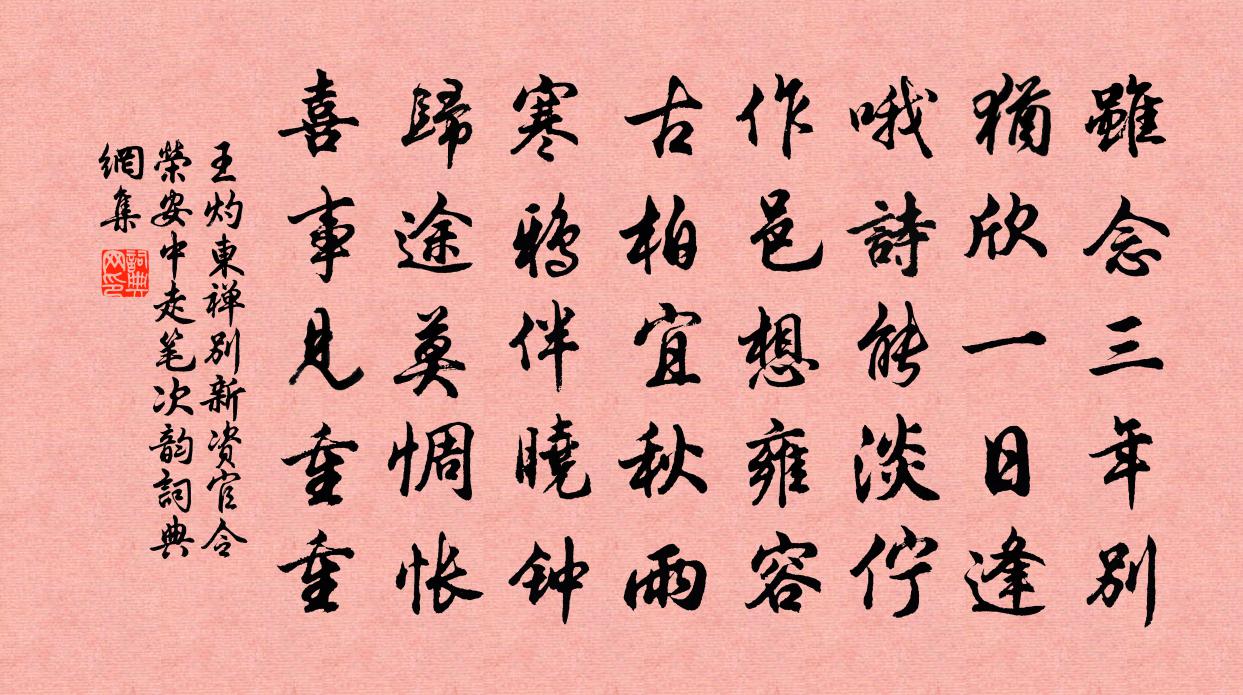 雖念三年别
猶欣一日逢
哦詩能淡佇
作邑想雍容
古柏宜秋雨
寒鴉伴曉钟
歸途莫惆怅
喜事見重重
王灼東禅别新资官令
榮安中走笔次韵詞典
網集
詞典
网印